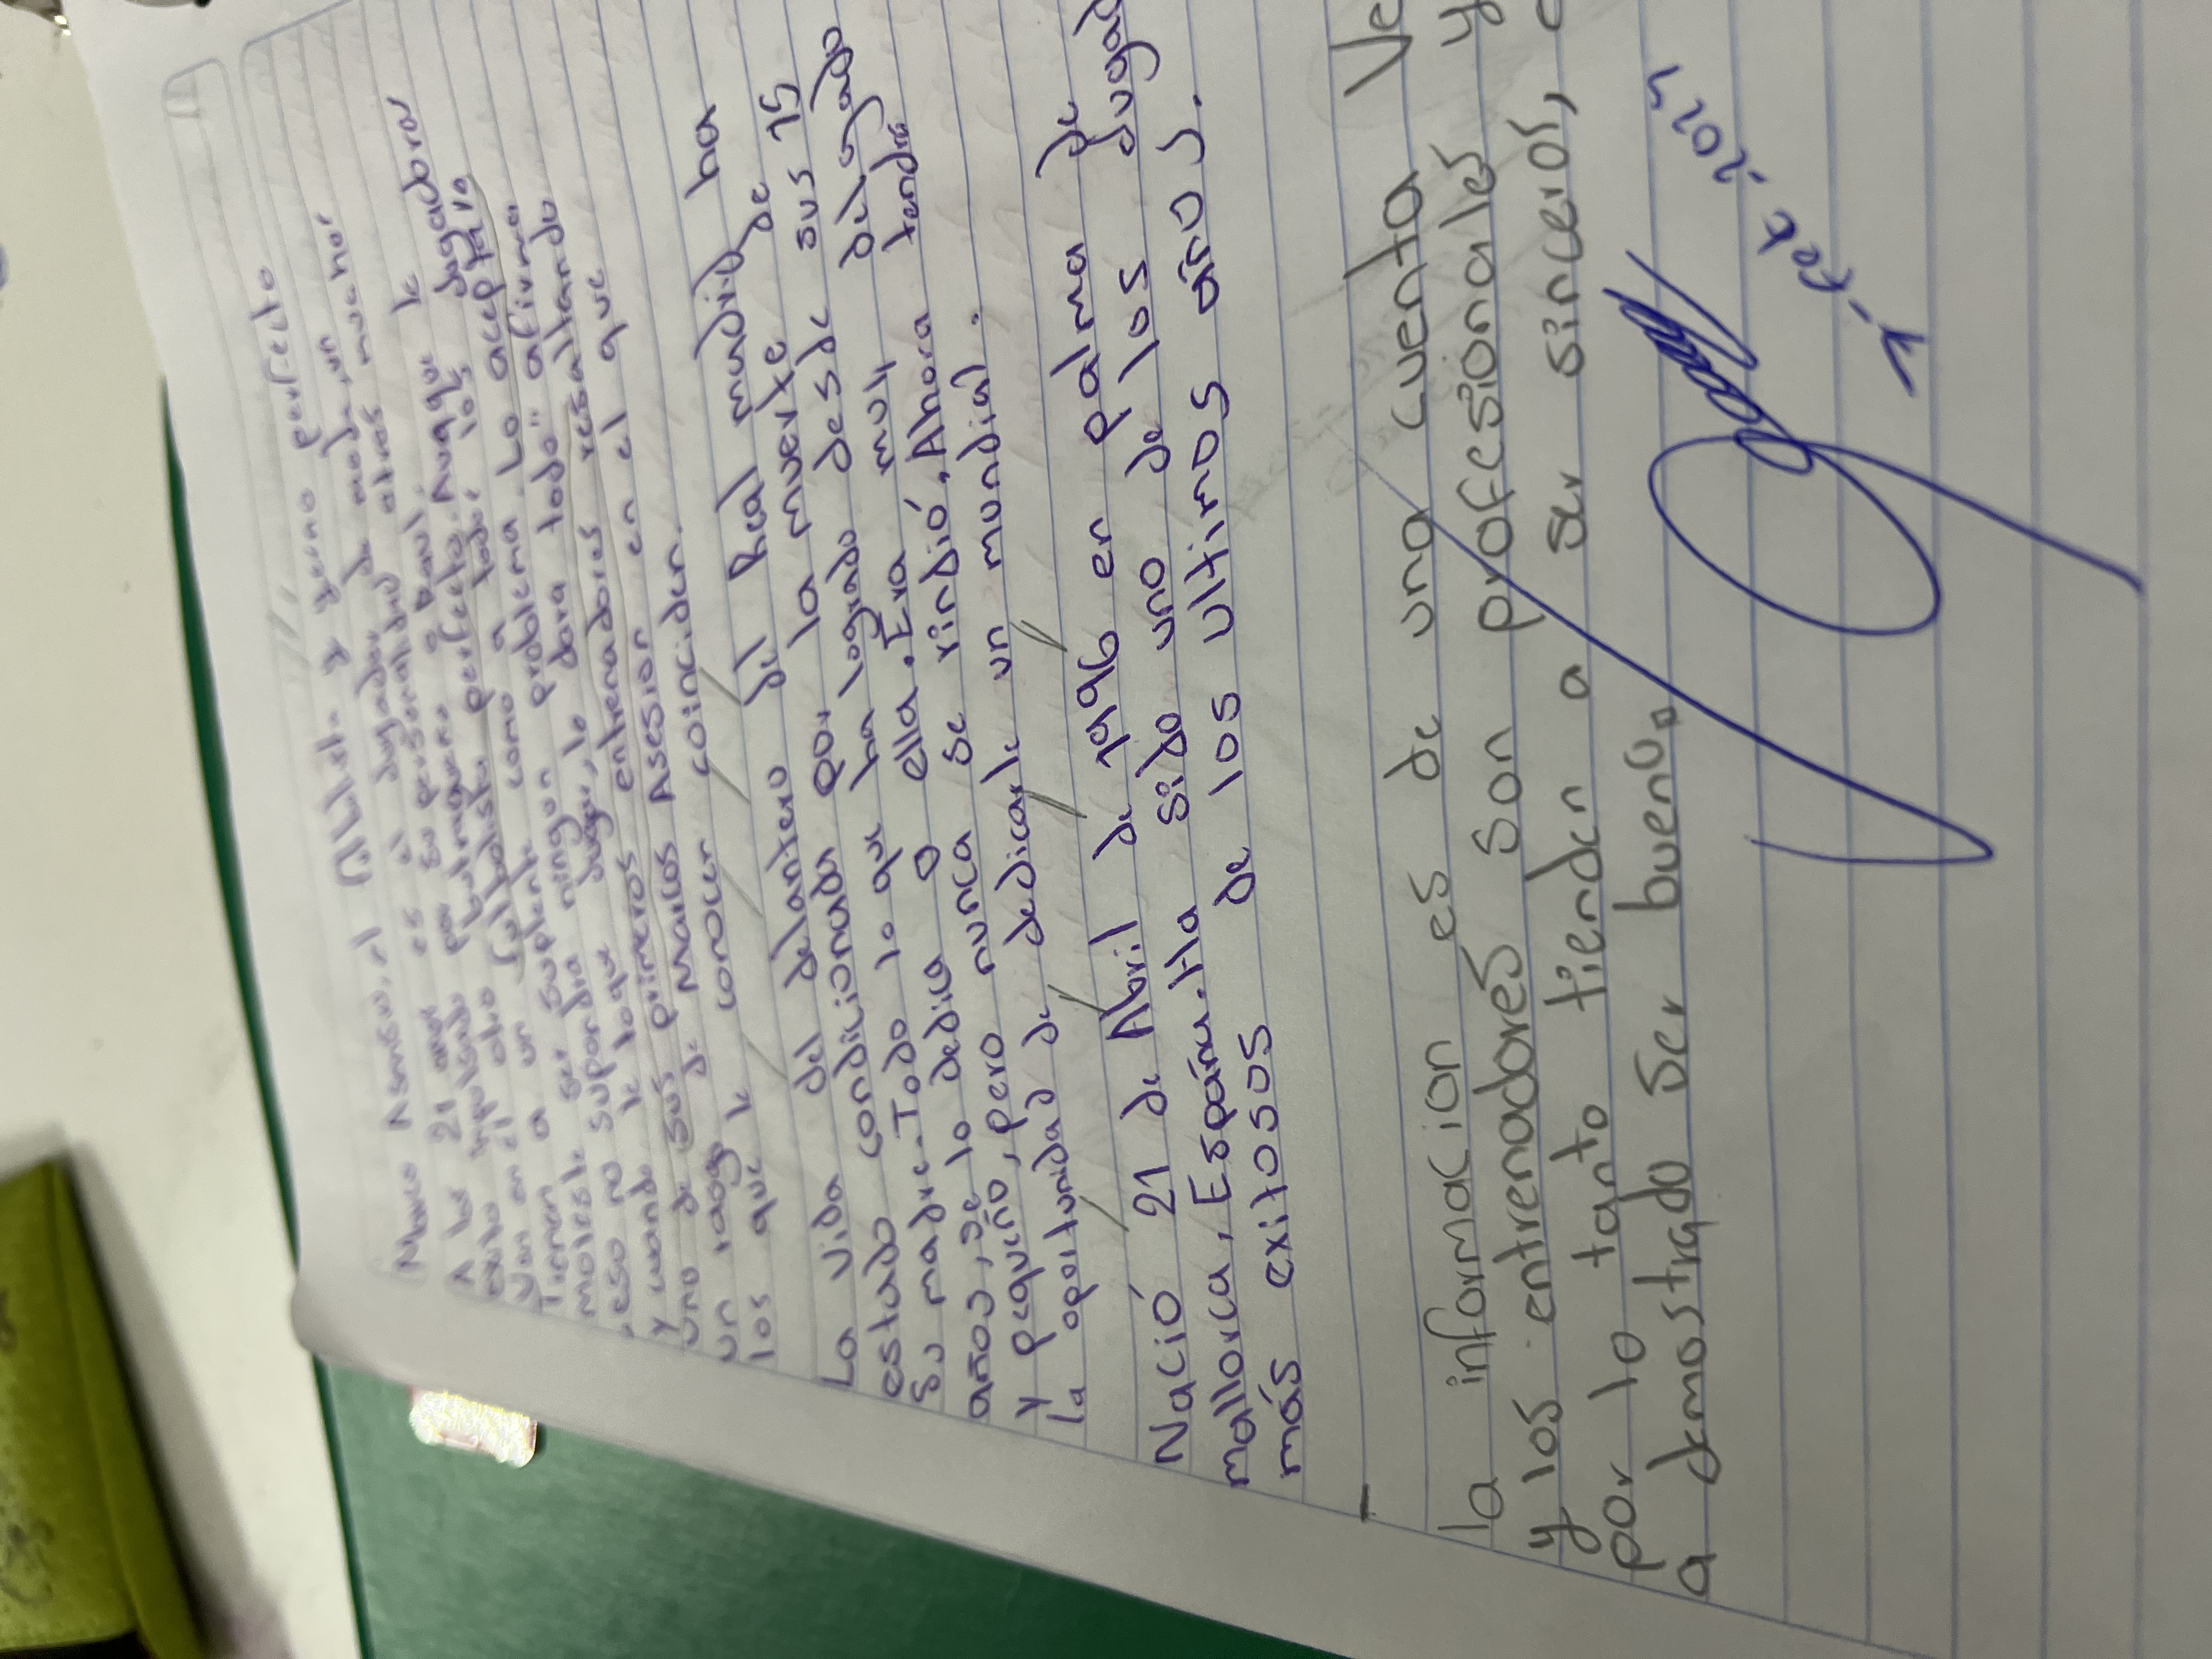 Marco Asensio, el Atleta y yerno perfecto
A los 21 años es el jugador de moda, un
exito impulsado por su personalidad
Van en el otro
a un futbolista perfecto. Aunque le
Tienen suplente como a todos los jugadores
moleste ser problema Lo acepta
eso no supondria ningun para todo" afirma
y cuando le toque jugar, lo dara resaltando
uno de sus primeros entrenadores
un rasgo de Marcos Asesion en el que
los que le conocen coinciden.
La vida del delantero del Real madrid ha
estado condicionada por la muerte de
su madre. Todo lo que ha logrado desde sus 15
años, se lo dedica a ella. Era muy delgado
y pequeño, pero nunca se rindió, Ahora tendra
la oportunidad de dedicarle un mundial.
Nació 21 de Abril de 1996 en palma de
mallorca, España. Ha sido uno de los jugad
más exitosos de los ultimos años.
Ve
la informacion es de una cuenta y
y los entrenadores son profesionales
por lo tanto tienden a ser sinceros,
a demostrado ser bueno.
1-feb-2024